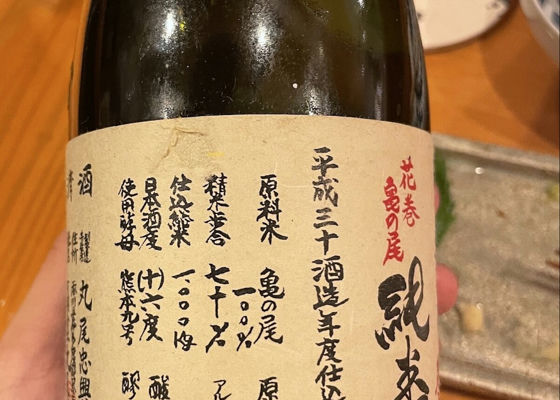 花巻
亀の尾
純米
平成三十酒造年度仕込
原料米 亀の尾 原
100%
精米歩合 七十% アル
仕込総米 一〇〇〇kg
日本酒度 (十)十六度 酸
使用酵母 熊本九号 醪
清酒
製造 丸尾忠興